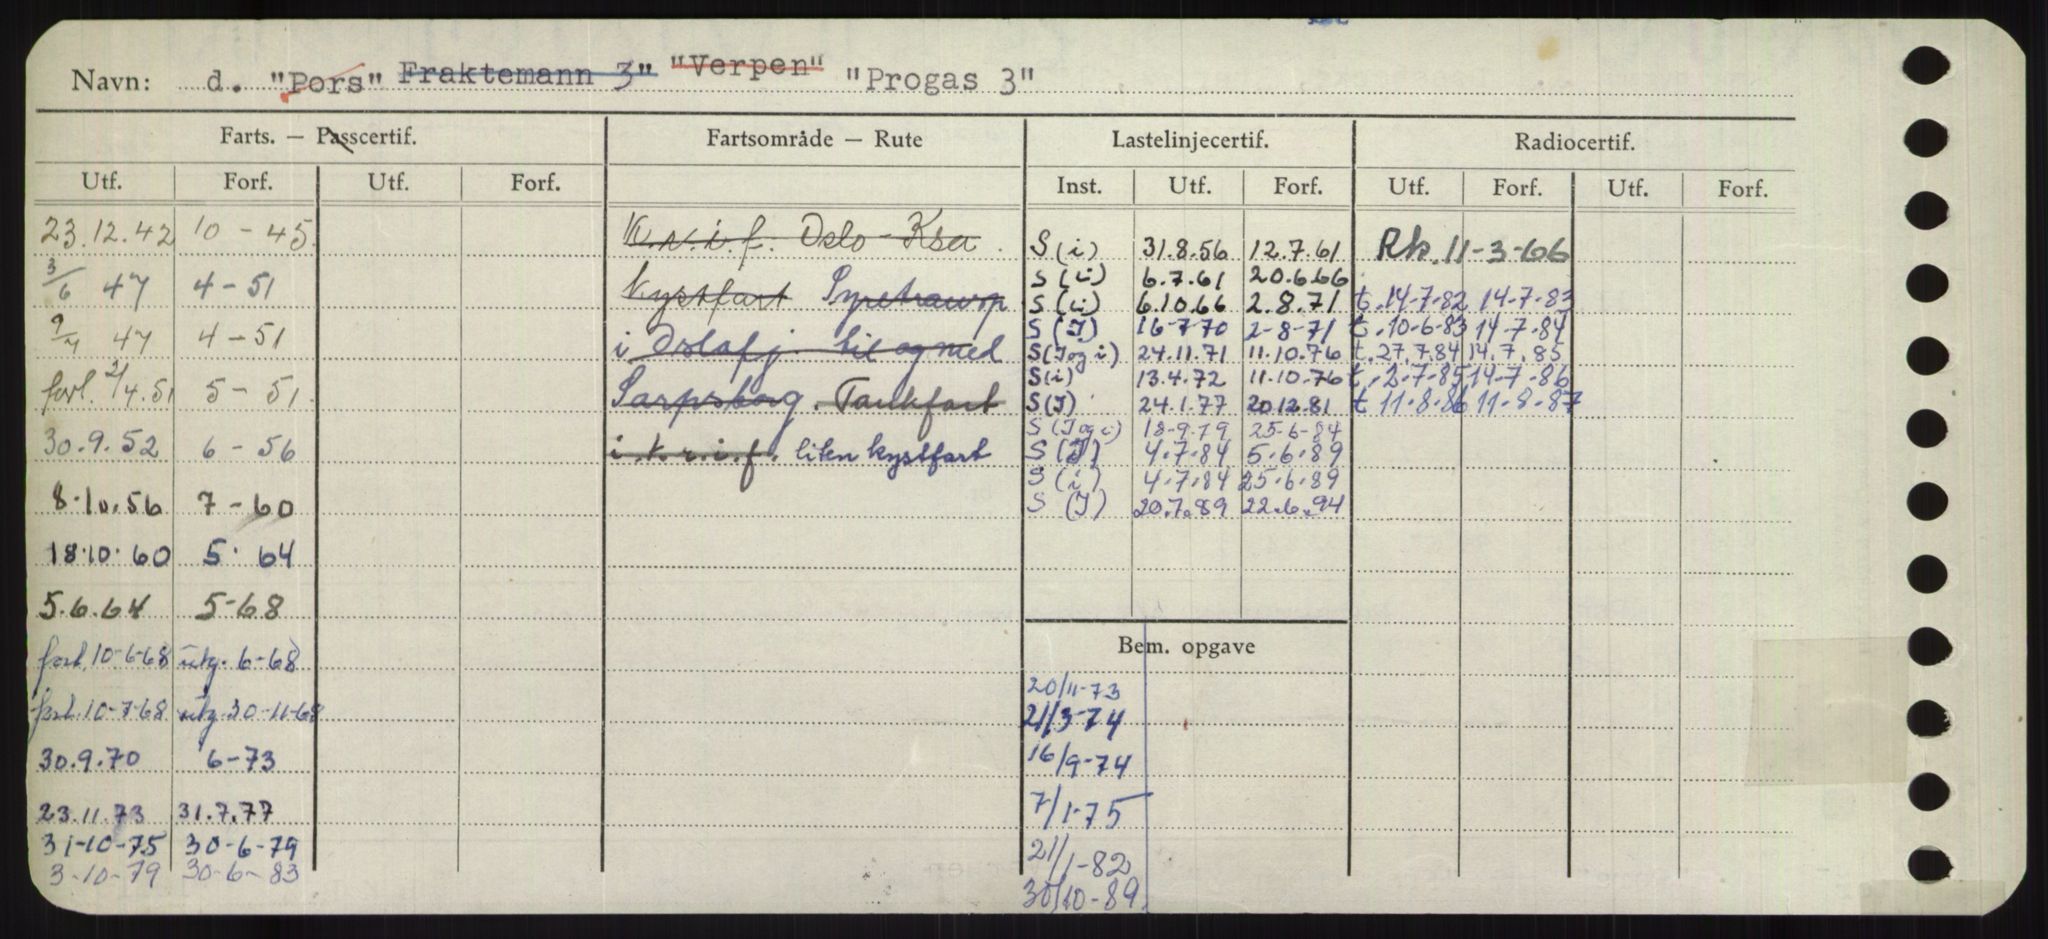 Navn: d. "Pors" Fraktemann 3" "Verpen" "Progas 3"
Farts. — Passcertif. Fartsområde — Rute Lastelinjecertif. Radiocertif.
Utf. Forf. Utf. Forf. Inst. Utf. Forf. Utf. Forf. Utf. Forf.
23.12.42 10 - 45. K.r.i.f. Oslo - Ksa. S (i) 31.8.56 12.7.61 Rk. 11-3-66
S (i) 6.7.61 20.6.66
3/6 47 4 - 51 kystfart S (i) 6.10.66 2.8.71 t. 14-7-82 14-7-83
S (I) 16-7-70 2-8-71 t. 10-6-83 14-7-84
9/7 47 4 - 51 i Oslofj. til og med S (I og i) 24.11.71 11.10.76 t. 27.7.84 14.7.85
S (i) 13.4.72 11.10.76 t. 2-7-85 14-7-86
forl. 2/4.51 5 - 51. Sarpsborg. Tankfart S (I) 24.1.77 20.12.81 t 11-8-86 11-8-87
S (I og i) 18-9-79 25-6-84
30.9.52 6 - 56 i k.r.i.f. liten kystfart S (I) 4.7.84 5.6.89
S (i) 4.7.84 25.6.89
8.10.56 7 - 60 S (I) 20.7.89 22.6.94
18.10.60 5. 64
5.6.64 5-68
Bem. opgave
forl. 10-6-68 utg. 6-68
20/11-73
forl. 10-7-68 utg. 30-11-68 21/3-74
30.9.70 6-73 16/9-74
23.11.73 31.7.77 7/1-75
31-10-75 30-6-79 21/1-82
3-10-79 30-6-83 30/10-89